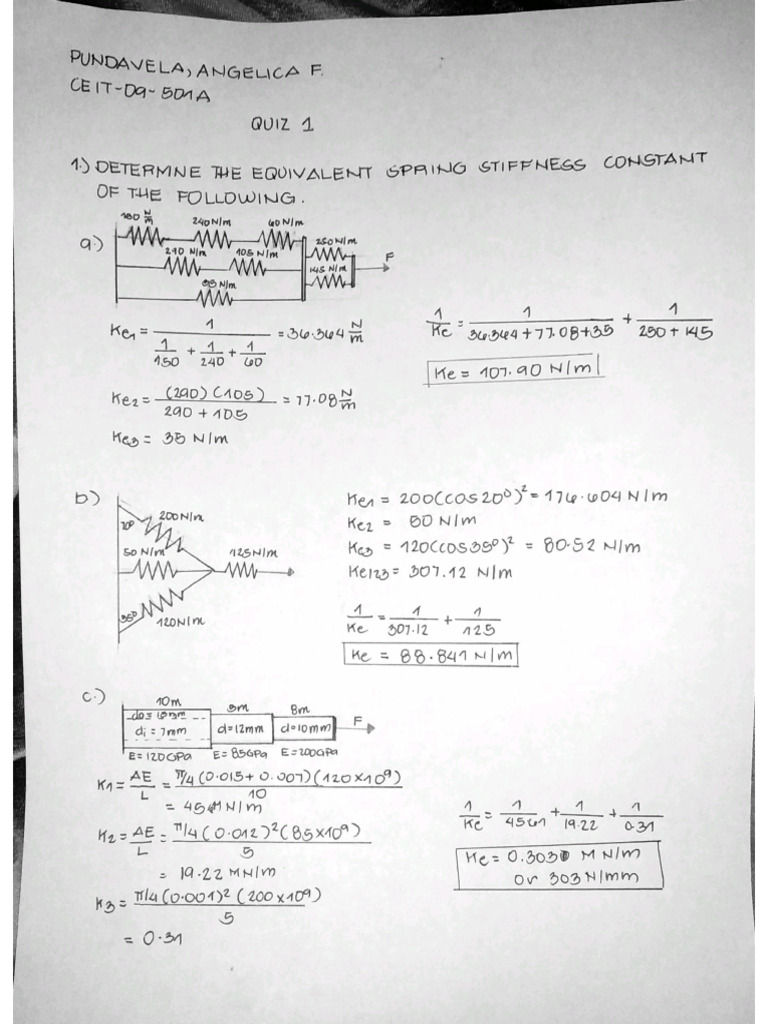 PUNDAVELA, ANGELICA F.
CEIT-09-501A
QUIZ 1
1.) DETERMNE THE EQUIVALENT SPRING STIFFNESS CONSTANT
OF THE FOLLOWING.
a.)
240 N/m 60 N/m
105 N/m
145 N/m
F
Ke1 = 1 / (1/150 + 1/240 + 1/60) = 36.364 N/m
Ke2 = (290)(105) / 290 + 105 = 77.08 N/m
Ke3 = 35 N/m
1/Ke = 1 / 36.364 + 77.08 + 35 + 1 / 250 + 145
Ke = 107.90 N/m
b)
200 N/m
50 N/m 125 N/m
35°
120 N/m
Ke1 = 200(cos20°)² = 176.604 N/m
Ke2 = 50 N/m
Ke3 = 120(cos35°)² = 80.52 N/m
Ke123 = 307.12 N/m
1/Ke = 1/307.12 + 1/125
Ke = 88.841 N/m
c.)
10m 5m 8m
di = 7mm d=12mm d=10mm F
E=120GPa E=85GPa E=200GPa
K1 = AE/L = π/4 (0.015 + 0.007)(120x10⁹) / 10
K2 = AE/L = π/4 (0.012)² (85x10⁹) / 5
= 19.22 MN/m
K3 = π/4 (0.001)² (200x10⁹) / 5
= 0.31
1/19.22 + 1/0.31
Ke = 0.303 MN/m
or 303 N/mm